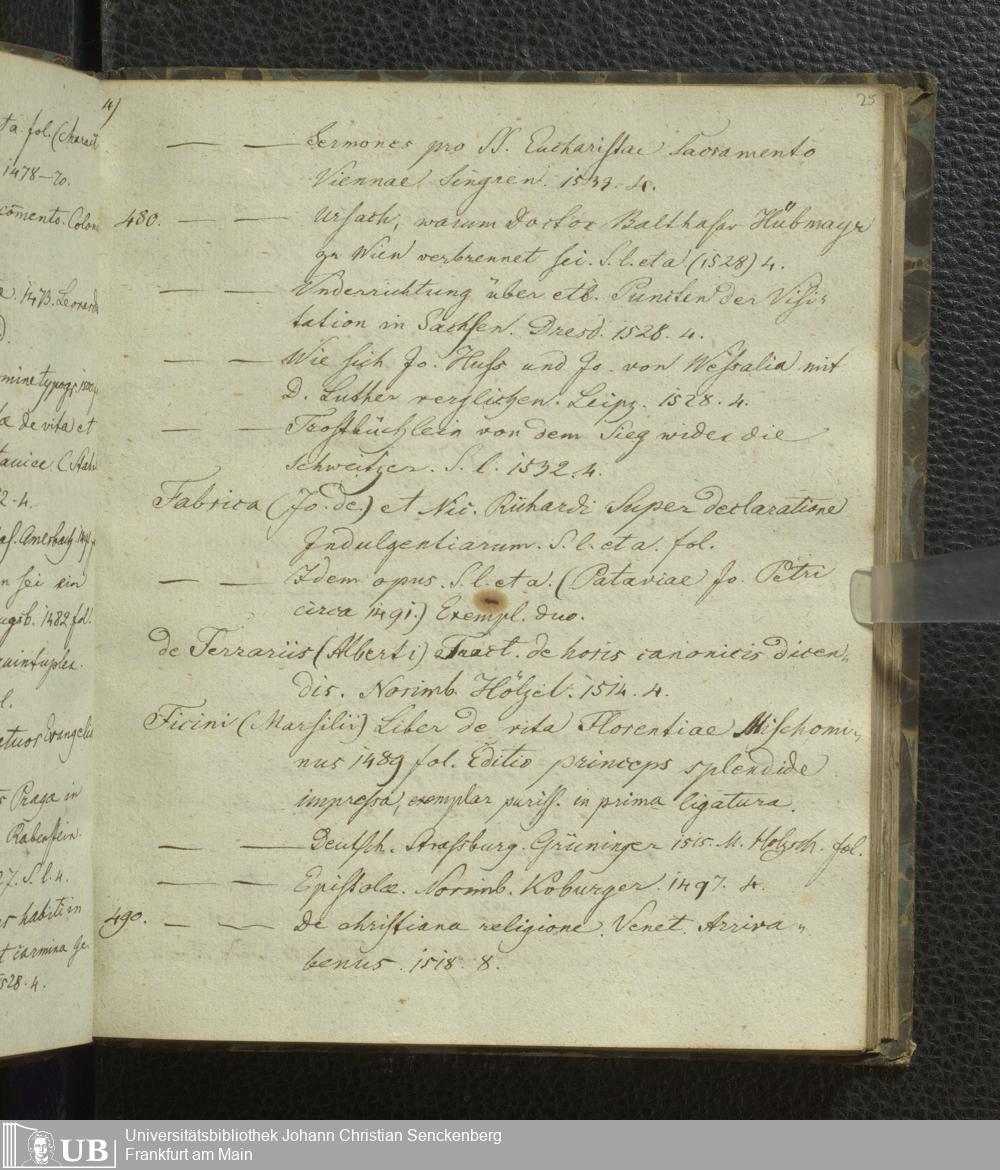 25
— — Sermones pro SS. Eucharistae Sacramento
Viennae Singren. 1539. 4.
480. — — Ursach, warum Doctor Balthasar Hübmayr
zu Wien verbrennet sei. S. l. et a (1528) 4.
— — Underrichtung über etl. Puncten der Visi-
tation in Sachsen. Dresd. 1528. 4.
— — Wie sich Jo. Huss und Jo. von Wessalia mit
D. Luther verglichen. Leipz. 1528. 4.
— — Trostbüchlein von dem Sieg wider die
Schweitzer. S. l. 1532. 4.
Fabrica (Jo. de) et Nic. Richardi Super declaratione
Indulgentiarum. S. l. et a. fol.
— — Idem opus. S. l. et a. (Pataviae Jo. Petri
circa 1491.) Exempl. duo.
de Ferrariis (Alberti) Tract. de horis canonicis dicen-
dis. Norimb. Hölzel. 1514. 4.
Ficini (Marsilii) Liber de vita Florentiae Mischomi-
nus 1489 fol. Editio princeps splendide
impressa, exemplar puriss. in prima ligatura.
— — Deutsch. Strassburg. Grüninger 1515. M. Holzsch. fol.
— — Epistolae. Norimb. Koburger. 1497. 4.
490. — — De christiana religione. Venet. Arriva-
benus. 1518. 8.
ta. fol. (Charact
1478–70.
comento. Colon
. 1473. Leonard
mine typogr. 1500
de vita et
2-4.
af. Amerbach
n sei ein
ugsb. 1482 fol.
uintuplex.
l.
etuor Evangelia
Praga in
Rabenstein.
27. S. l. 4.
habiti in
t carmina Ge-
528. 4.
UB
Universitätsbibliothek Johann Christian Senckenberg
Frankfurt am Main